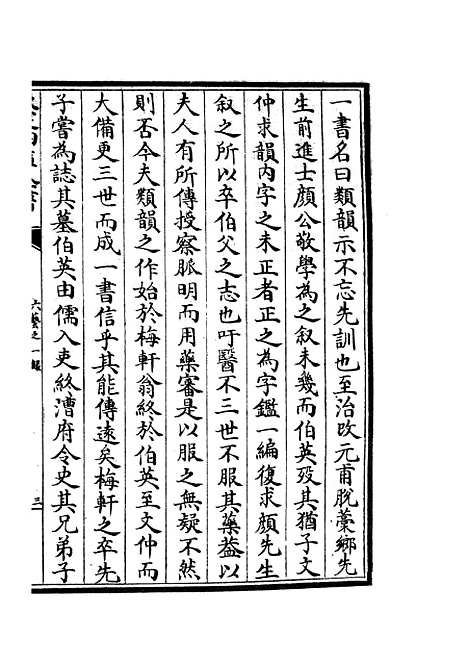 一書名曰類韻示不忘先訓也至治改元甫脫藁鄉先
生前進士顔公敬學為之叙未幾而伯英歿其猶子文
仲求韻内字之未正者正之為字鑑一編復求顔先生
叙之所以卒伯父之志也吁醫不三世不服其藥葢以
夫人有所傳授察脈明而用藥審是以服之無疑不然
則否今夫類韻之作始於梅軒翁終於伯英至文仲而
大備更三世而成一書信乎其能傳逺矣梅軒之卒先
子嘗為誌其墓伯英由儒入吏終漕府令史其兄弟子
六藝之一錄